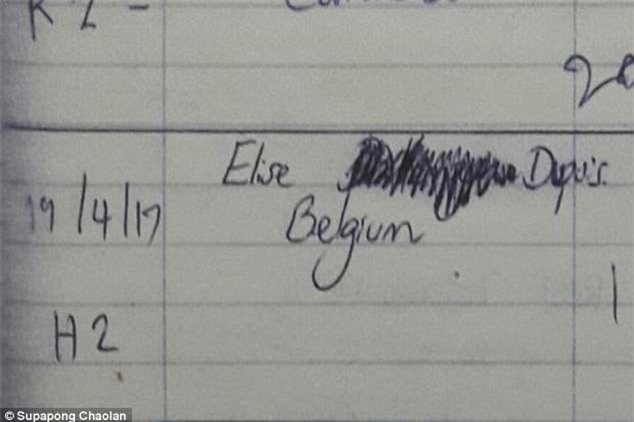 K2 -
Elise Depuis.
19/4/17 Belgium
H2
© Supapong Chaolan